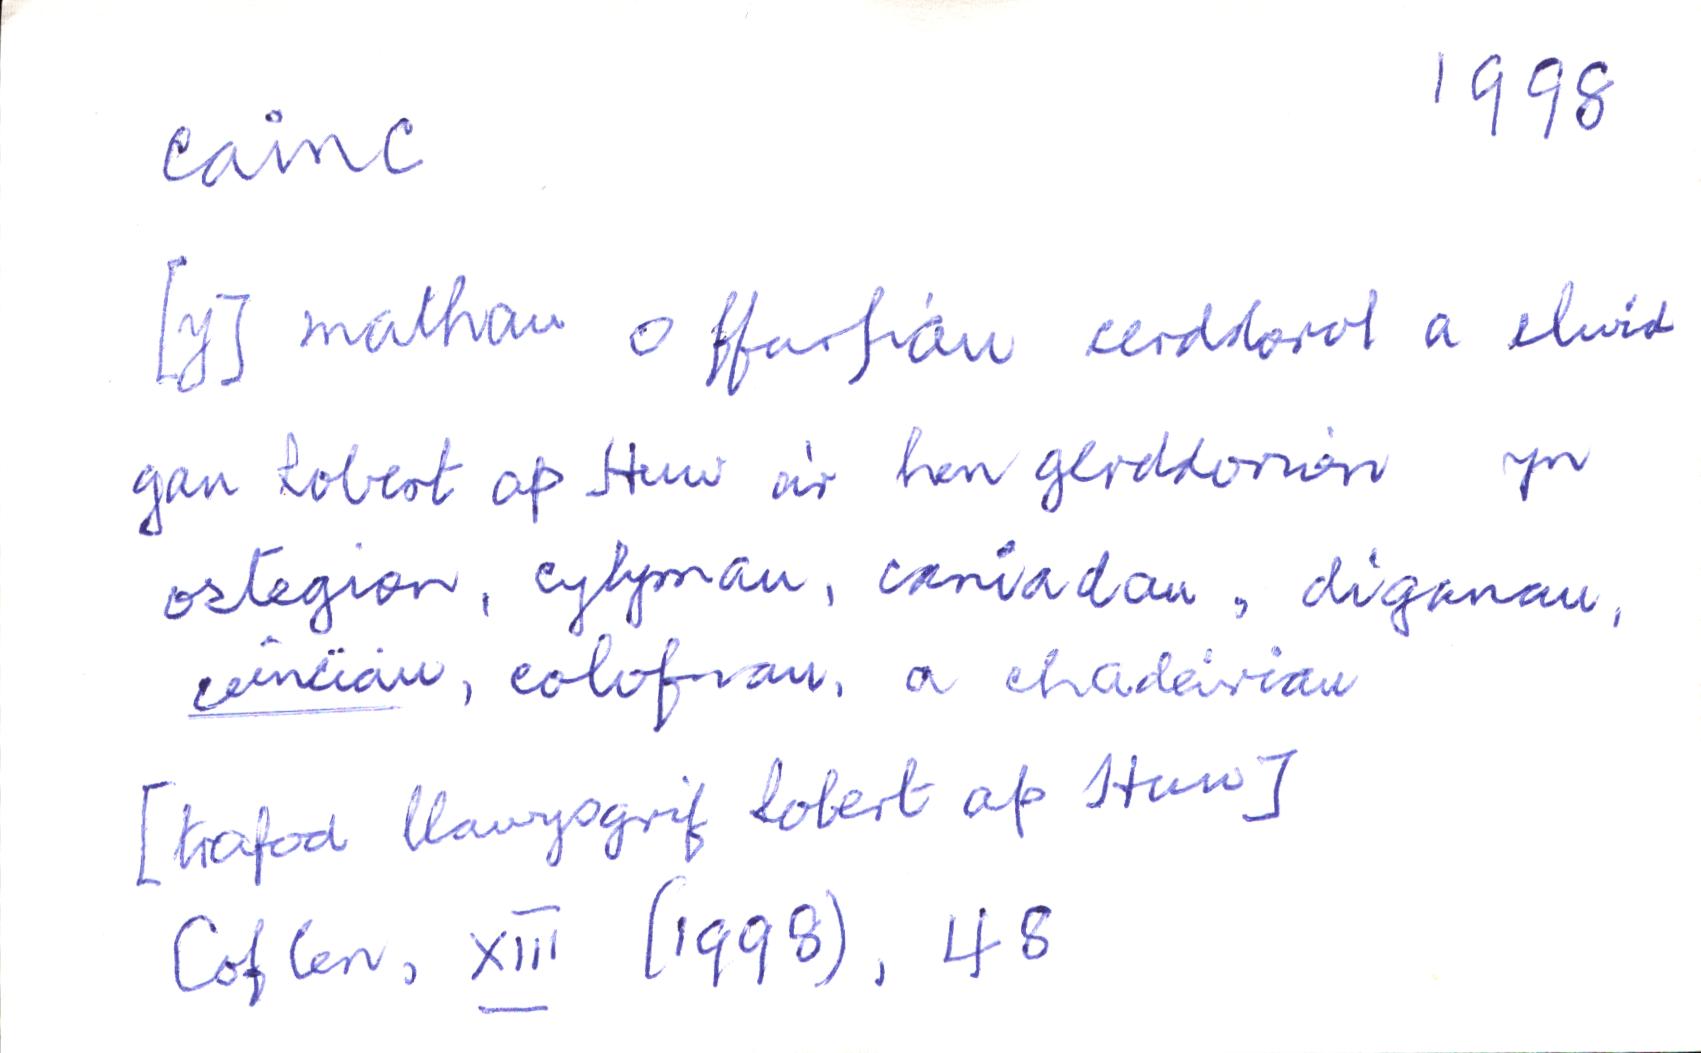 1998
cainc
[y] mathau o ffurfiau cerddorol a elwid
gan Robert ap Huw a'r hen gerddorion yn
ostegion, cylymau, caniadau, diganau,
ceinciau, colofnau, a chadeiriau
[trafod llawysgrif Robert ap Huw]
Cof Cen, XIII (1998), 48